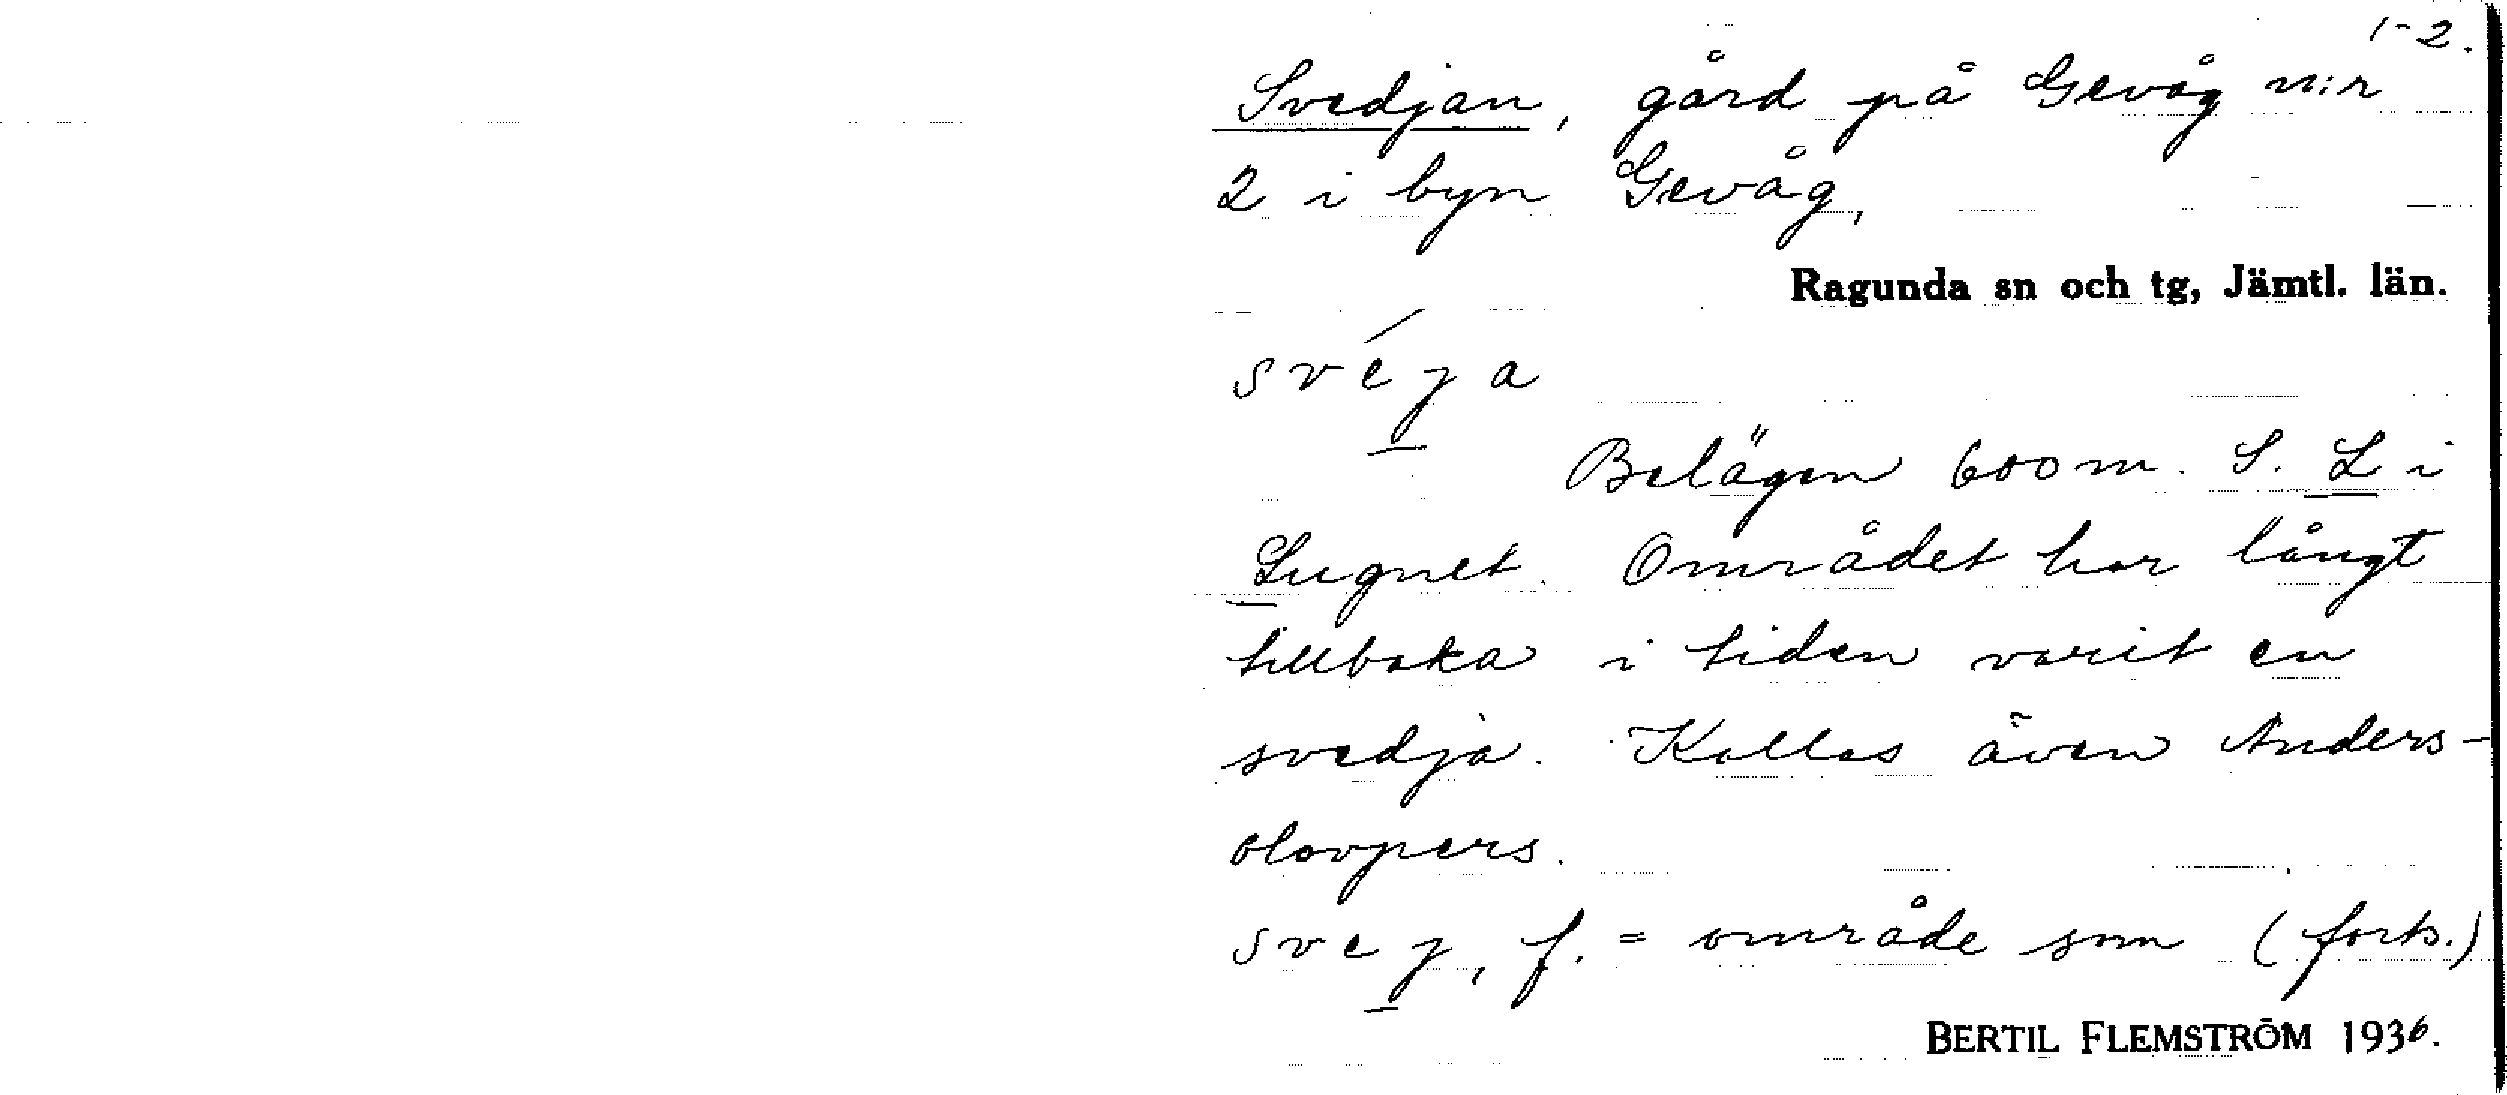 1-2.
Svedjan, gård på Gevåg n:r
2 i byn Gevåg,
Ragunda sn och tg, Jämtl. län.
svéja
Belägen 600 m. S. L i
Lugnet. Området har långt
tillbaka i tiden varit en
svedja. Kallas även Anders-
olovpers.
svej, f. = område som (forts.)
BERTIL FLEMSTRÖM 1936.